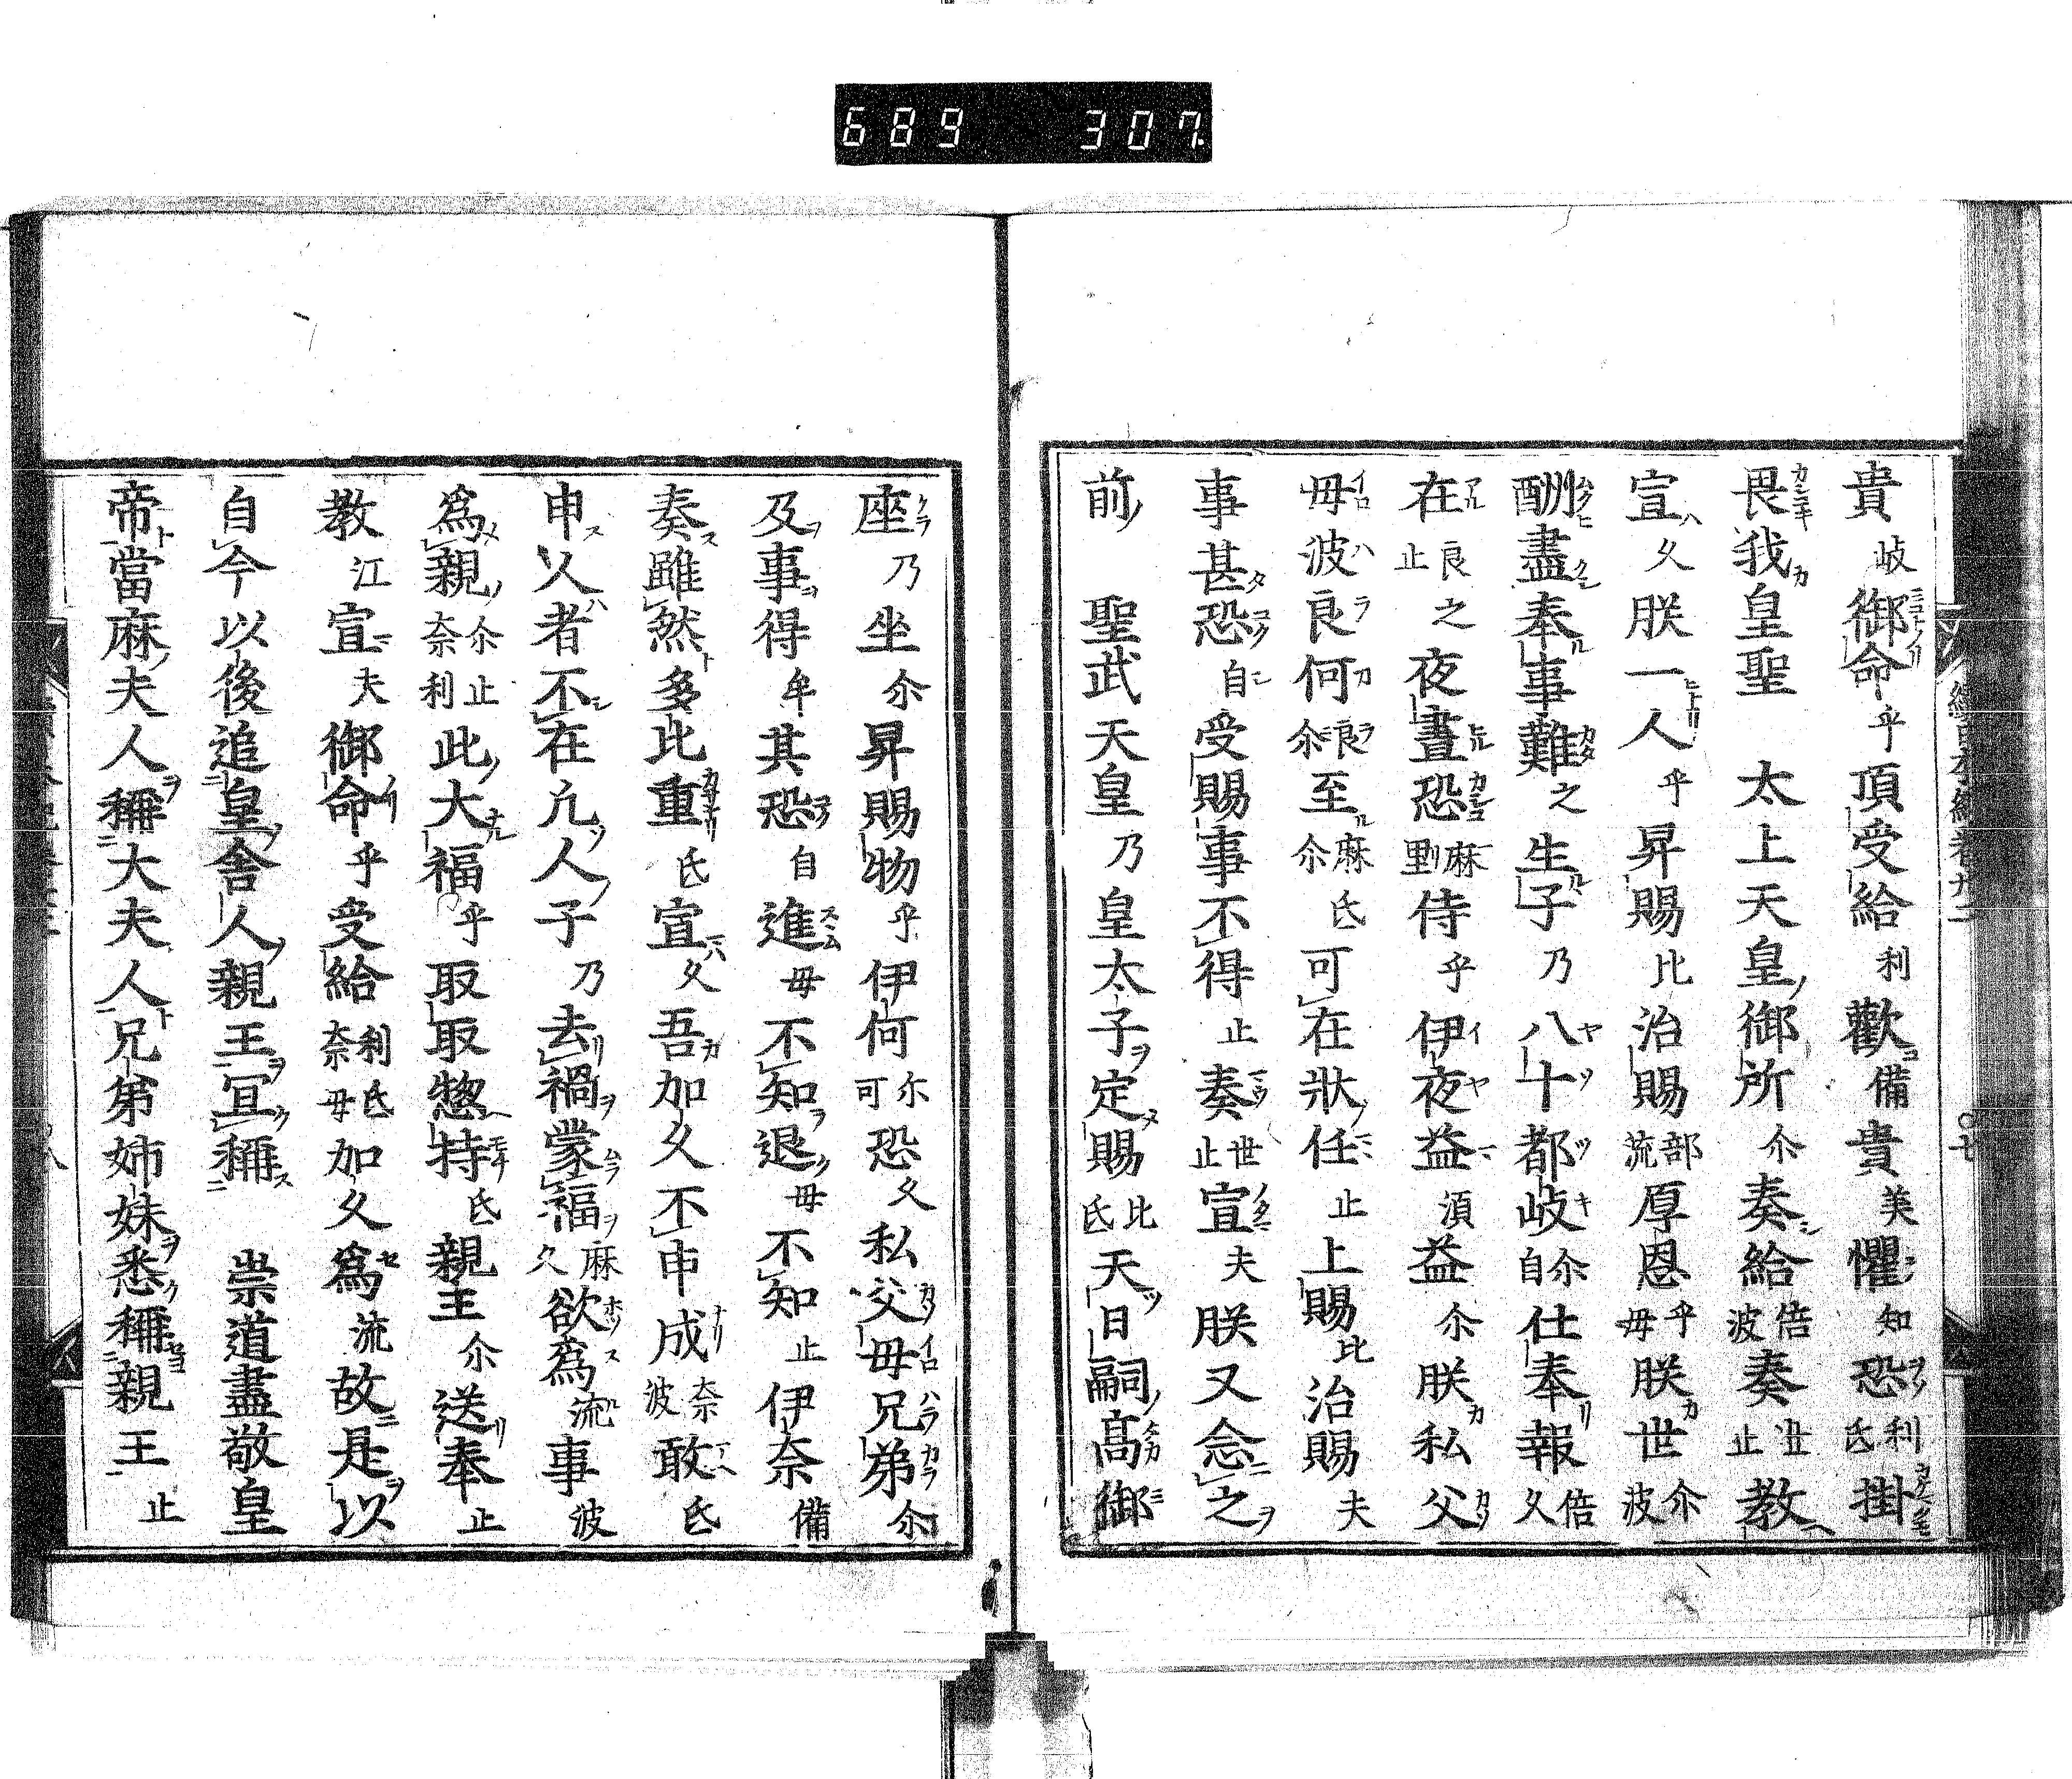 689 307
貴岐御命乎頂受給利歡備貴美懼知恐利氐掛
畏我皇聖 太上天皇御所尒奏給倍波奏止丗教
宣久朕一人乎昇賜比治賜部流厚恩乎毋朕世尒波
酬盡奉事難之生子乃八十都岐尒自仕奉報倍久
在良止之夜晝恐麻里侍乎伊夜益湏益尒朕私父
毋波良何良尒至麻尒氐可在狀任止上賜比治賜夫
事甚恐自受賜事不得止奏世止宣夫朕又念之
前 聖武天皇乃皇太子定賜比氐天日嗣髙御
座乃坐尒昇賜物乎伊何尒可恐久私父毋兄弟尒
及事得牟其恐自進毋不知退毋不知止伊奈備
奏雖然多比重氐宣久吾加久不申成奈波敢氐
申人者不在凢人子乃去禍蒙福麻久欲爲流事波
爲親尒止奈利此大福乎取取惣持氐親王尒送奉止
教江宣夫御命乎受給利氐奈毋加久爲流故是以
自今以後追皇舍人親王冝稱 崇道盡敬皇
帝當麻夫人稱大夫人兄弟姉妹悉稱親王止